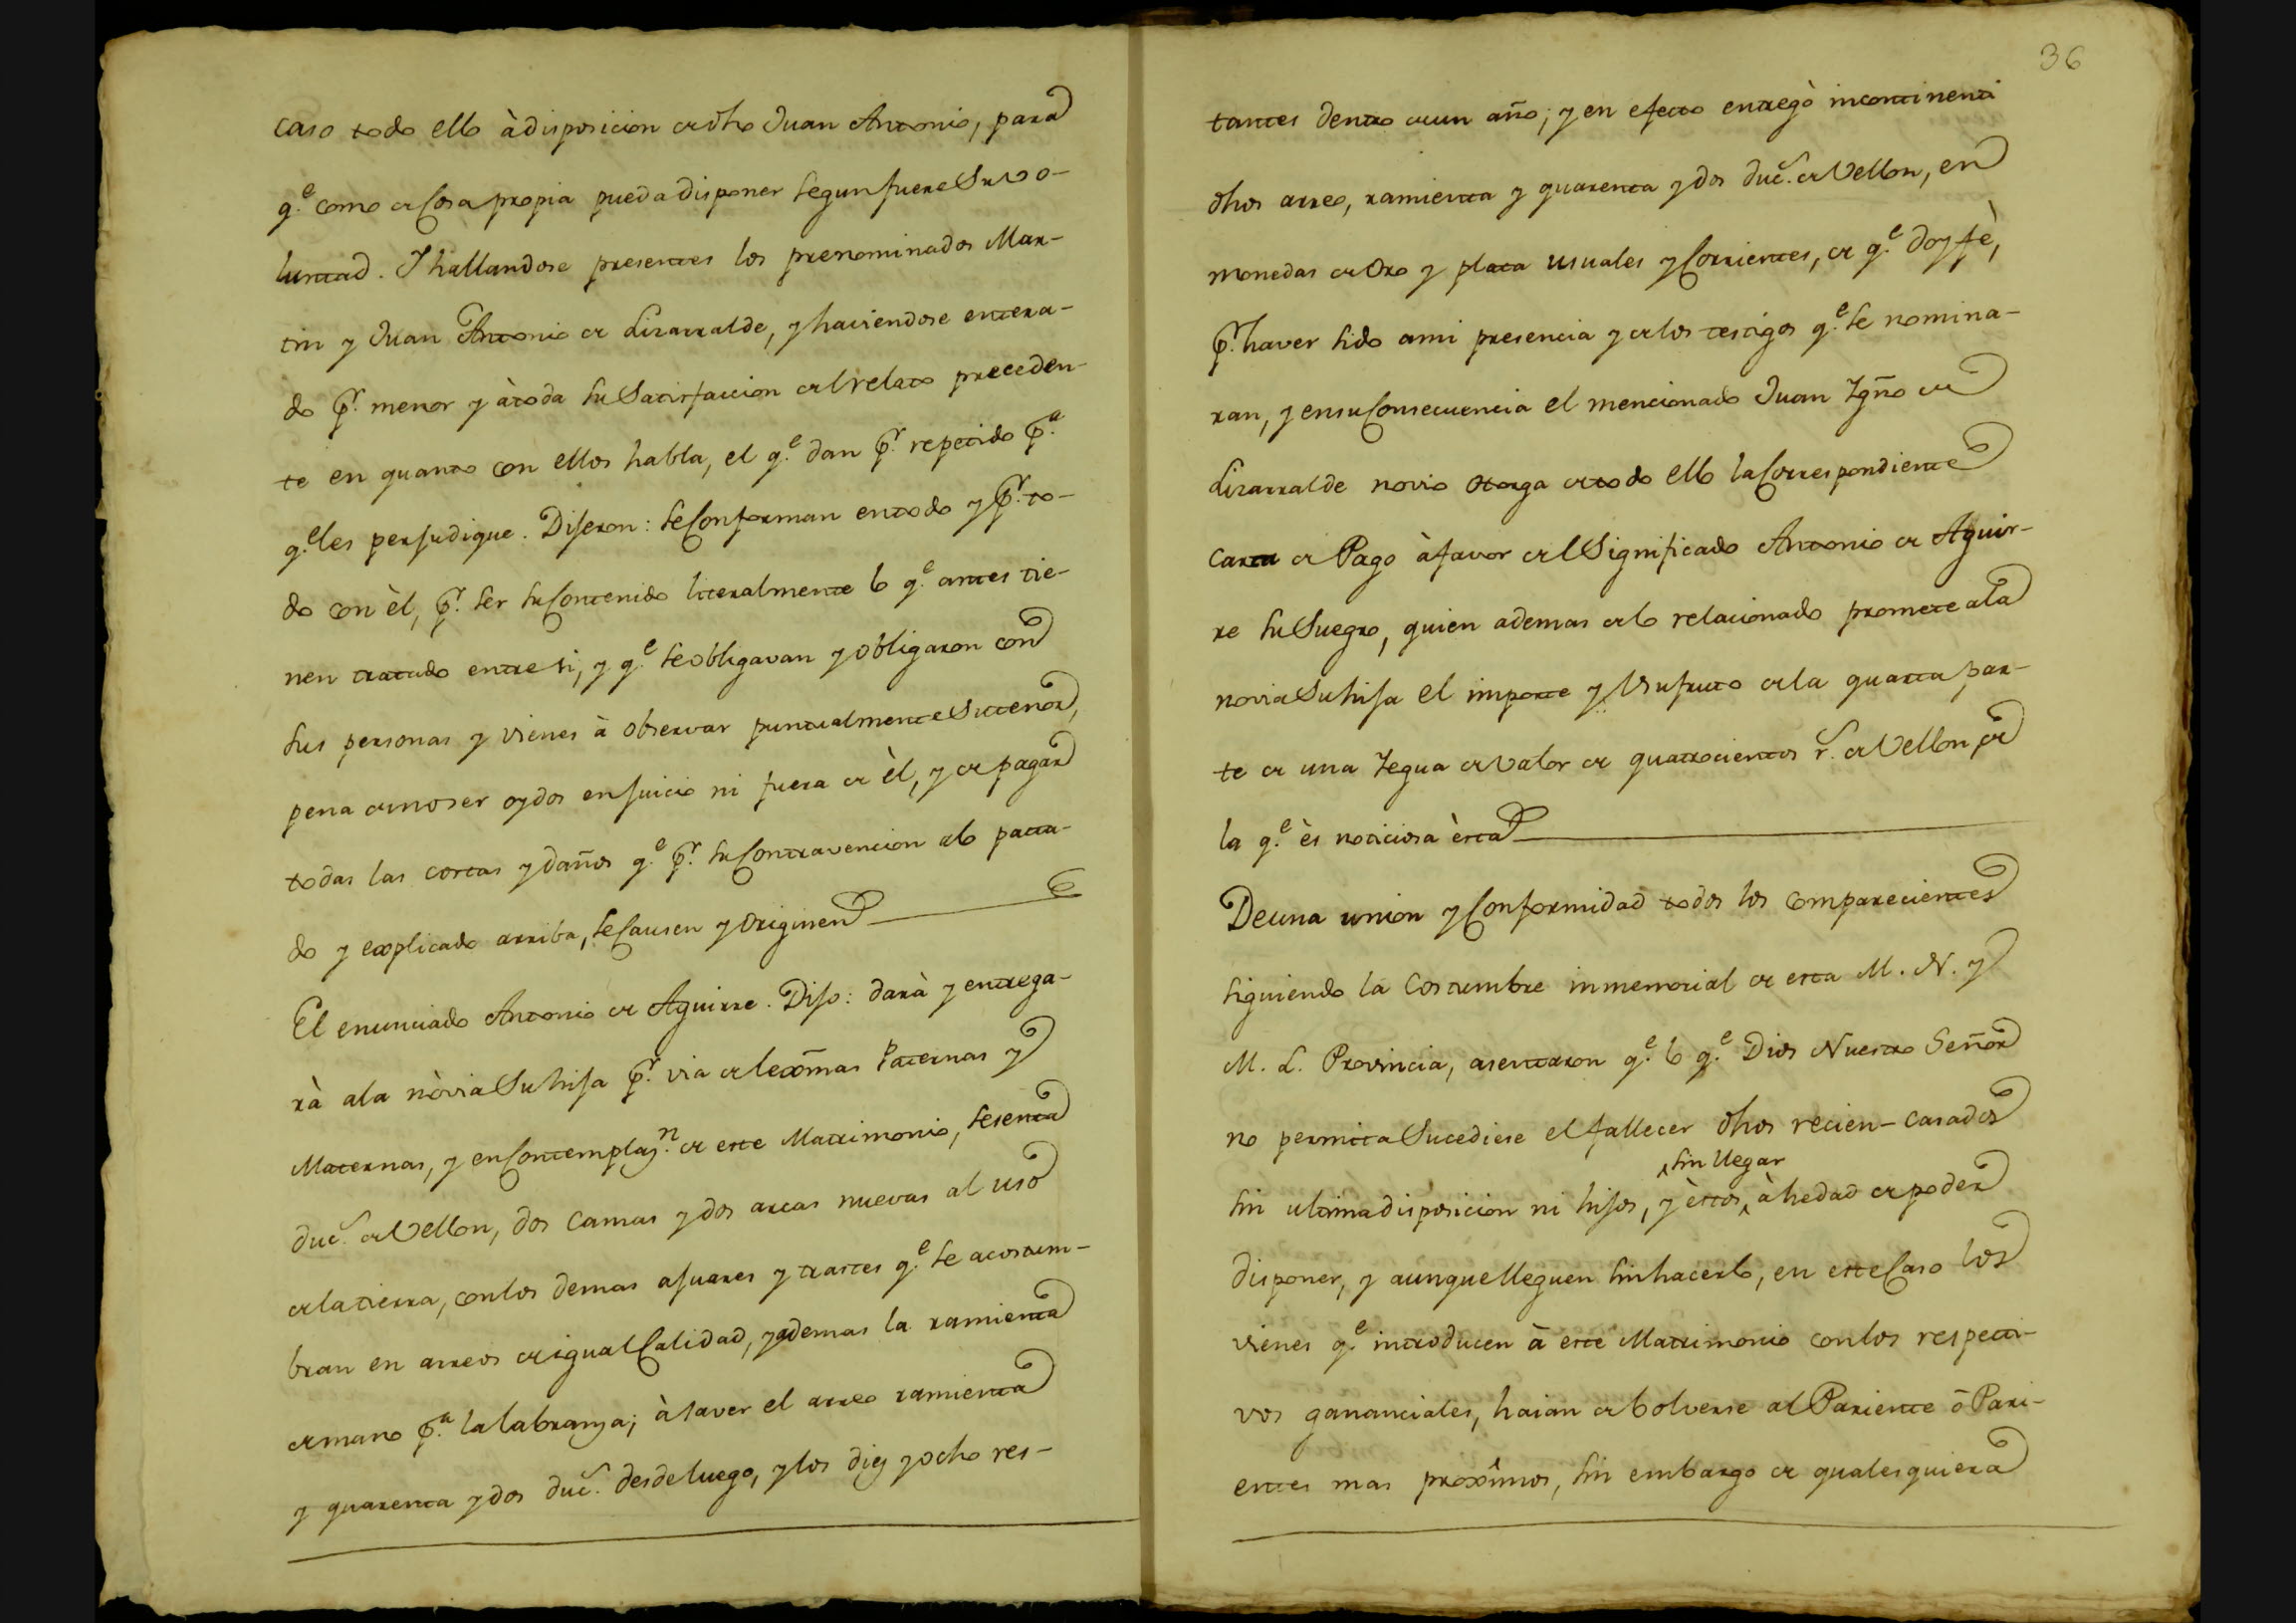 caso todo ello à disposicion de dho Juan Antonio, para
q.e como de Cosa propia pueda disponer segun fuere Su vo-
luntad. I hallandose presentes los prenominados Mar-
tin y Juan Antonio de Lizarralde, y haviendose entera-
do p.r menor y à toda su Satisfaccion del relato preceden-
te en quanto con ellos habla, el q.e dan p.r repetido p.a
q.e les perjudique. Dijeron: se Conforman en todo y p.r to-
do con èl, p.r ser su Contenido literalmente lo q.e antes tie-
nen tratado entre si, y q.e se obligavan y obligaron con
sus personas y vienes à observar puntualmente Su tenor,
pena de no ser oydos en juicio ni fuera de èl, y de pagar
todas las costas y daños q.e p.r su Contravencion a lo pacta-
do y explicado arriba, se Causen y originen
El enunciado Antonio de Aguirre. Dijo: darà y entrega-
rà a la nòvia Su hija p.r via de lexmas Paternas y
Maternas, y en Contemplaz.n de este Matrimonio, sesenta
duc.s de Vellon, dos Camas y dos arcas nuevas al uso
de la tierra, con los demas ajuares y trastes q.e se acostum-
bran en arreos de igual Calidad, y ademas la ramienta
de mano p.a la labranza; à saver el arreo ramienta
y quarenta y dos duc.s desde luego, y los diez y ocho res-
36
tantes dentro de un año; y en efecto entregò incontinenti
dhos arreo, ramienta y quarenta y dos duc.s de Vellon, en
monedas de Oro y plata usuales y Corrientes, de q.e doy fè,
p.r haver sido a mi presencia y de los testigos q.e se nomina-
ran, y en su Consecuencia el mencionado Juan Ygño de
Lizarralde novio otorga de todo ello la Correspondiente
Carta de Pago à favor del Significado Antonio de Aguir-
re su Suegro, quien ademas de lo relacionado promete a la
novia Su hija el importe y Usufruto de la quarta par-
te de una Yegua de valor de quatrocientos r.s de Vellon, de
la q.e ès noticiosa èsta
De una union y Conformidad todos los comparecientes
siguiendo la Costumbre inmemorial de esta M. N. y
M. L. Provincia, asentaron q.e lo q.e Dios Nuestro Señor
no permita Sucediese el fallecer dhos recien-casados
sin llegar
sin ultima disposicion ni hijos, y èstos à hedad de poder
disponer, y aunque lleguen sin hacerlo, en este Caso los
vienes q.e introducen à este Matrimonio con los respecti-
vos gananciales, haian de bolverse al Pariente ò Pari-
entes mas proximos, sin embargo de qualesquiera